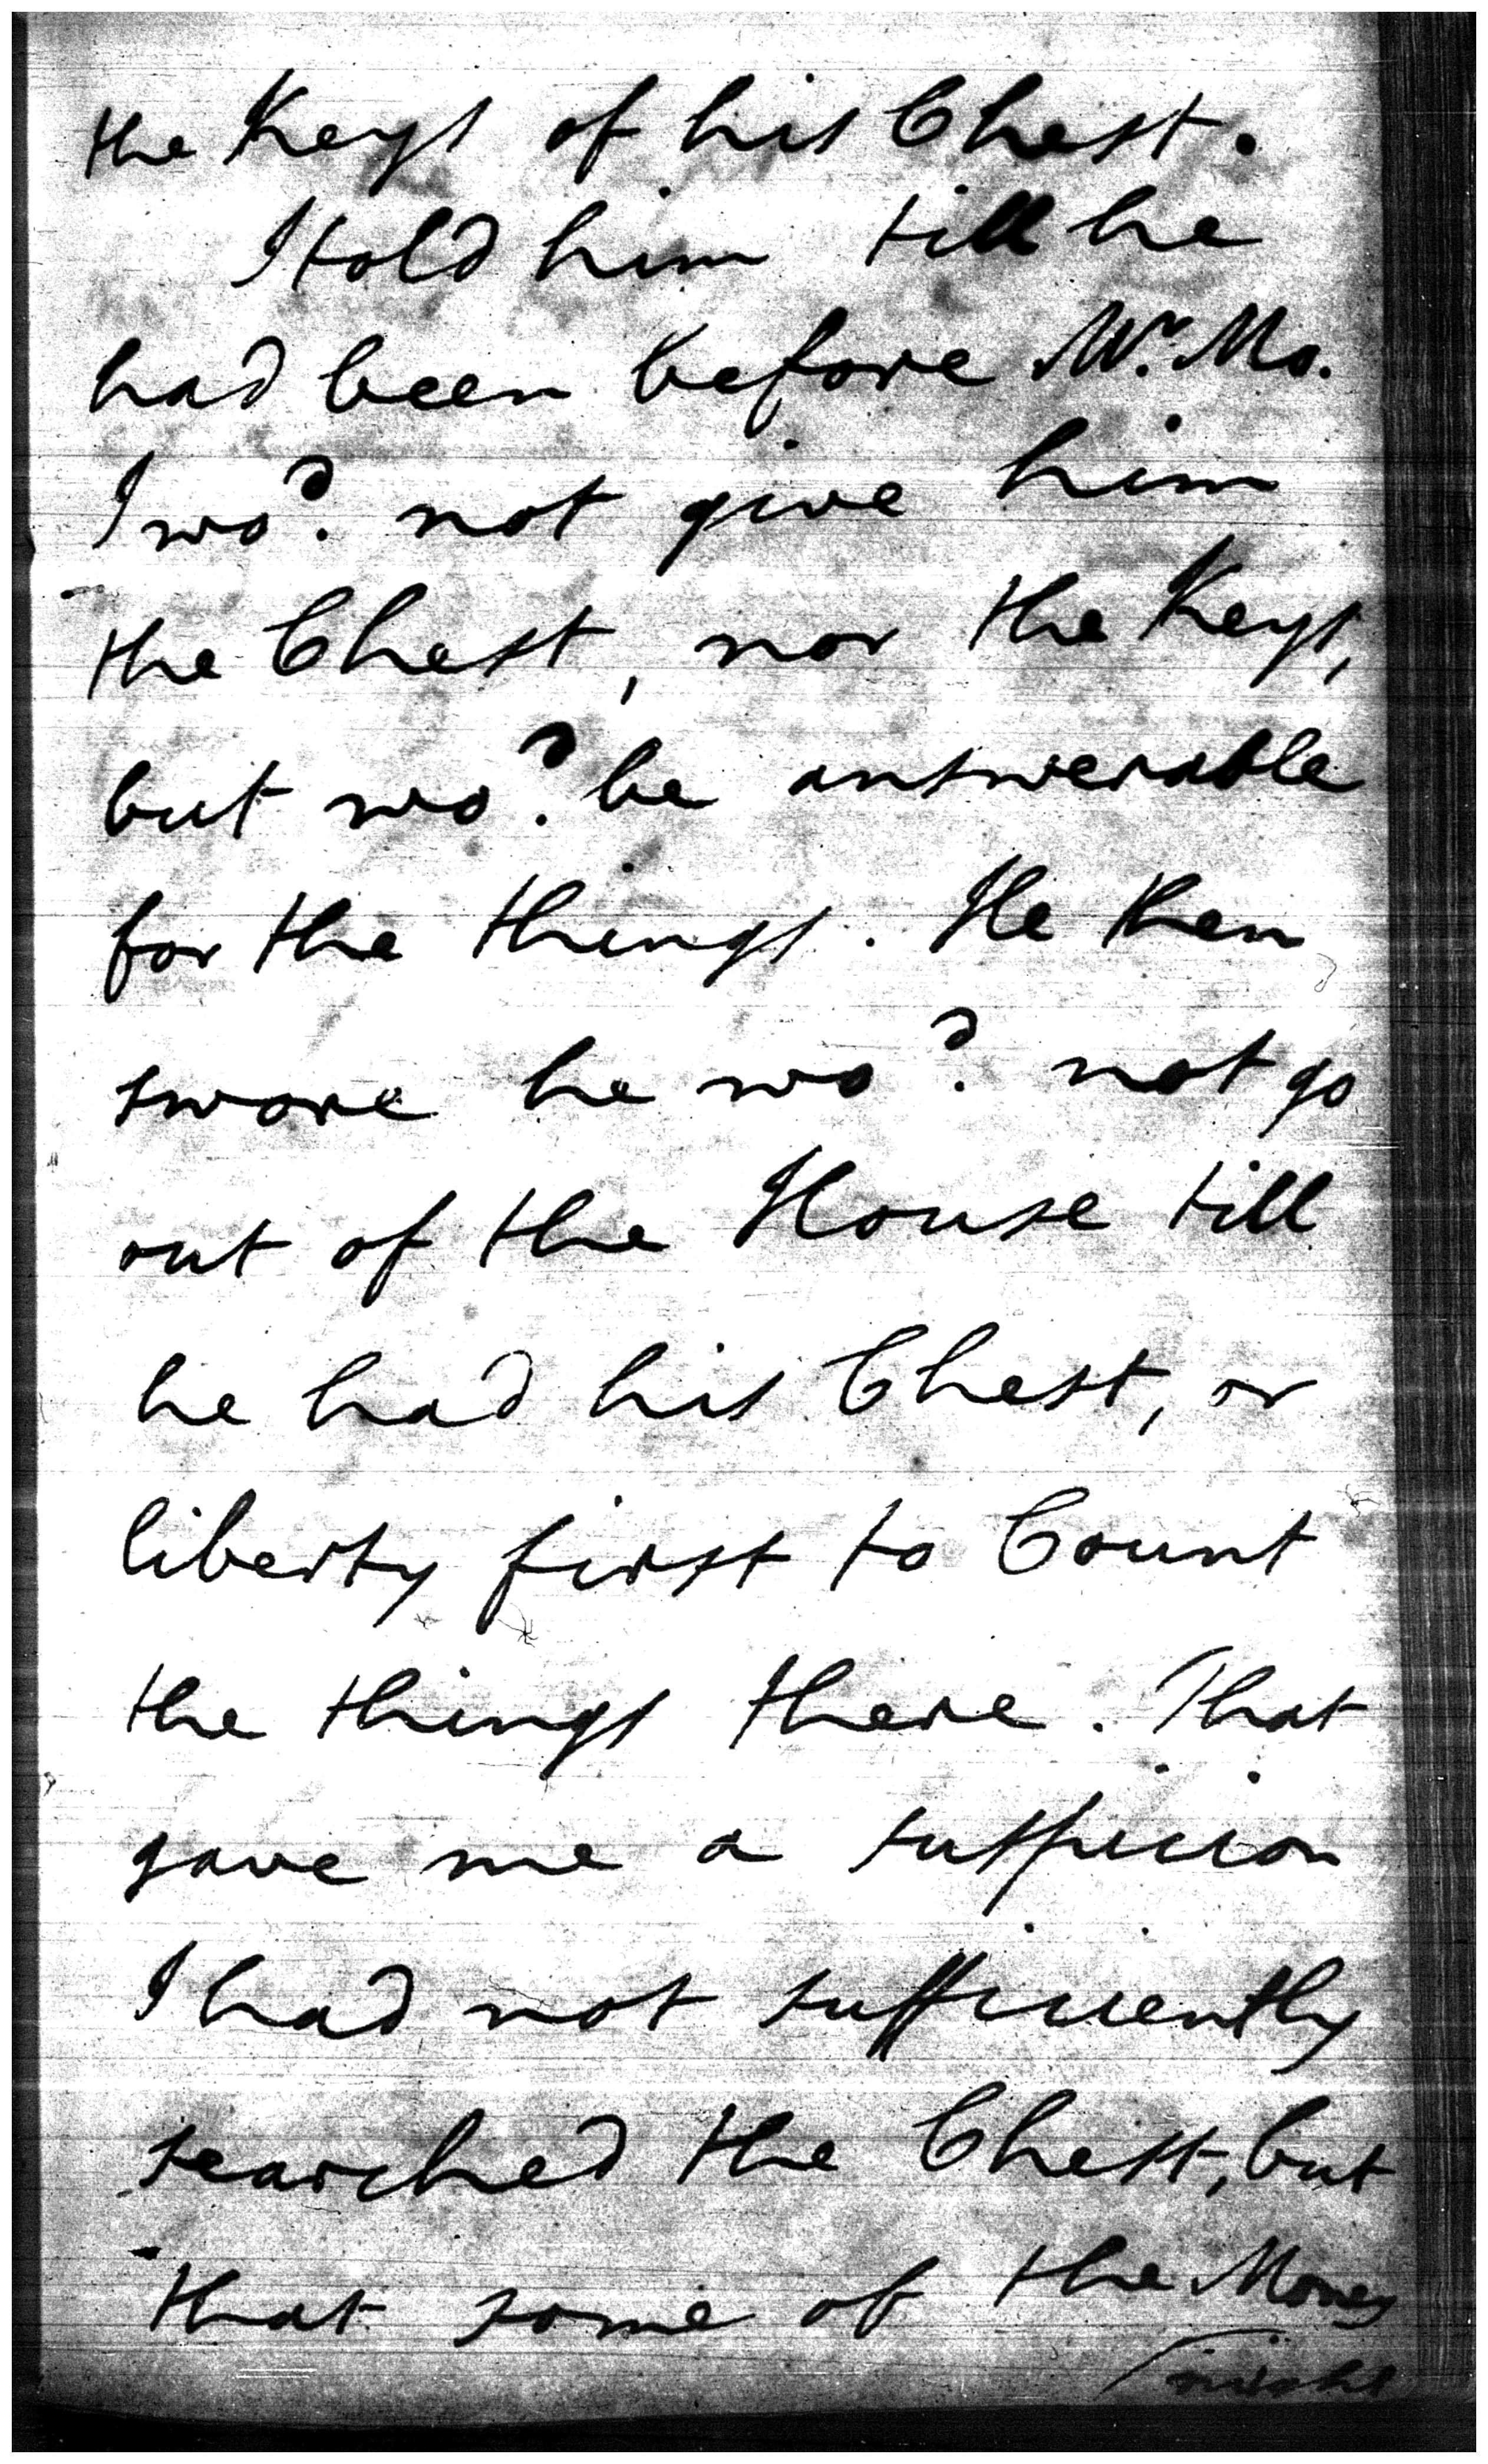 the Keys of his Chest.
I told him till he
had been before Mr. Mo.
I wod. not give him
the Chest, nor the Keys,
but wod. be answerable
for the things. He then
swore he wod. not go
out of the House till
he had his Chest, or
liberty first to Count
the things there. That
gave me a suspicion
I had not sufficiently
searched the Chest, but
that some of the Money
might